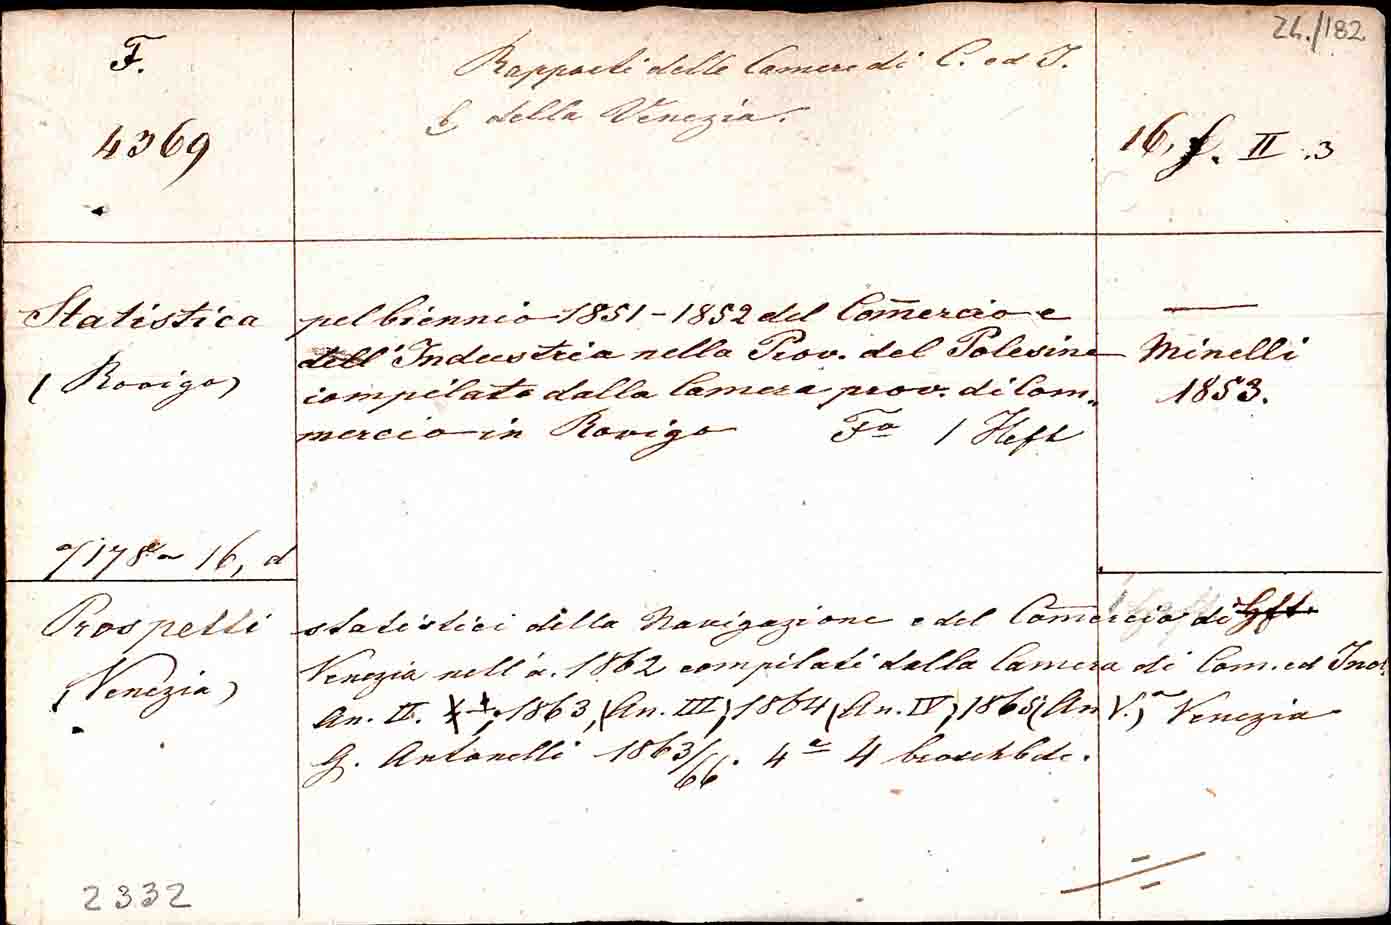 24./182
F.
Rapporti delle Camere di C. ed I.
della Venezia.
4369
16, f. II .3
Statistica pel biennio 1851-1852 del Com̅ercio e
dell'Industria nella Prov. del Polesine Minelli
(Rovigo) compilata dalla Camera prov. di Com„ 1853.
mercio in Rovigo Fo 1 Heft
16, d
Prospetti statistici della Navigazione e del Com̅ercio di Hft.
(Venezia) Venezia nell'a. 1862 compilati dalla Camera di Com. ed Ind.
An. II. 1863, (An. III), 1864 (An. IV), 1865 (An V.) Venezia
G. Antonelli 1863/66. 4o 4 broschbde.
2332